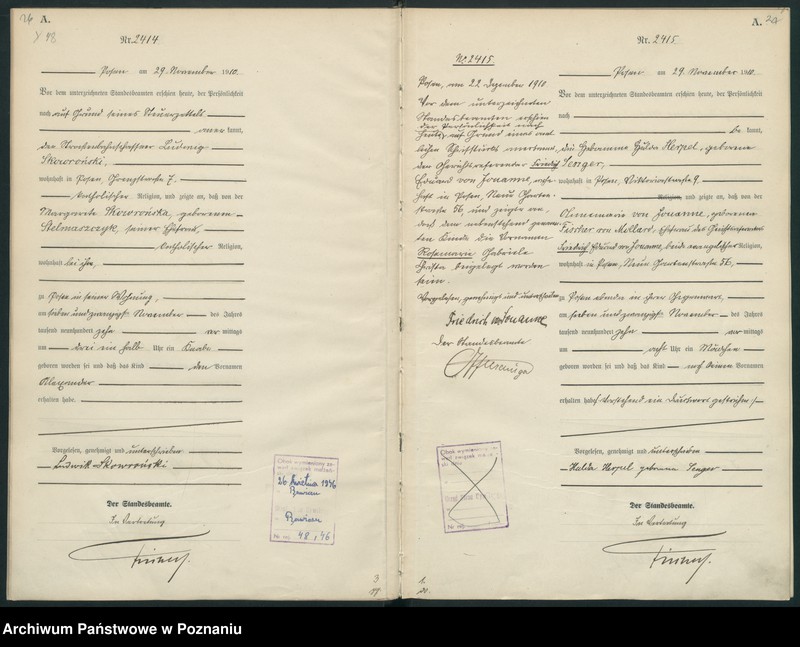 A.
Nr. 2414
Posen am 29. November 1910.
Vor dem unterzeichneten Standesbeamten erschien heute, der Persönlichkeit
nach auf Grund seines Steuerzettels
kannt,
der Ludwig
Skowroński,
wohnhaft in Posen, 7.
katholischer Religion, und zeigte an, daß von der
Margareta Skowrońska, geborenen
Stelmaszczyk, seiner Ehefrau,
katholischer Religion,
wohnhaft bei ihm,
zu Posen in seiner Wohnung,
am sieben und zwanzigsten November des Jahres
tausend neunhundert zehn vor mittags
um drei ein halb Uhr ein Knabe
geboren worden sei und daß das Kind den Vornamen
Alexander
erhalten habe.
Vorgelesen, genehmigt und unterschrieben
Ludwik Skowroński
Der Standesbeamte.
In Vertretung
26 kwietnia 1936
48/36
A.
Nr. 2415.
Posen am 29. November 1910.
Vor dem unterzeichneten Standesbeamten erschien heute, der Persönlichkeit
nach
be kannt,
die Hebamme Hulda Herpel, geborene
Senger,
wohnhaft in Posen, Viktoriastraße 9.
Religion, und zeigte an, daß von der
Annemarie von Jouanne, geborenen
Fischer von Mollard, Ehefrau des Gerichtsreferendars
Friedrich Edmund von Jouanne, beide evangelischer Religion,
wohnhaft in Posen, Neue Gartenstraße 56,
zu Posen ebenda in ihrer Gegenwart,
am sieben und zwanzigsten November des Jahres
tausend neunhundert zehn vor mittags
um acht Uhr ein Mädchen
geboren worden sei und daß das Kind noch keinen Vornamen
erhalten habe. Vorstehend ein Druckwort gestrichen.
Vorgelesen, genehmigt und unterschrieben
Hulda Herpel geborene Senger
Der Standesbeamte.
In Vertretung
No 2415.
Posen, am 22. Dezember 1910
Vor dem unterzeichneten
Standesbeamten erschien
der Persönlichkeit nach
heute, auf Grund eines amt-
lichen Schriftstücks anerkannt,
der Gerichtsreferendar Friedrich
Edmund von Jouanne, wohn-
haft in Posen, Neue Garten-
straße 56 und zeigte an,
daß dem nebenstehend genann-
ten Kinde die Vornamen
Rosemarie Gabriele
beigelegt worden
seien.
Vorgelesen, genehmigt und unterschrieben
Friedrich von Jouanne
Der Standesbeamte
Archiwum Państwowe w Poznaniu